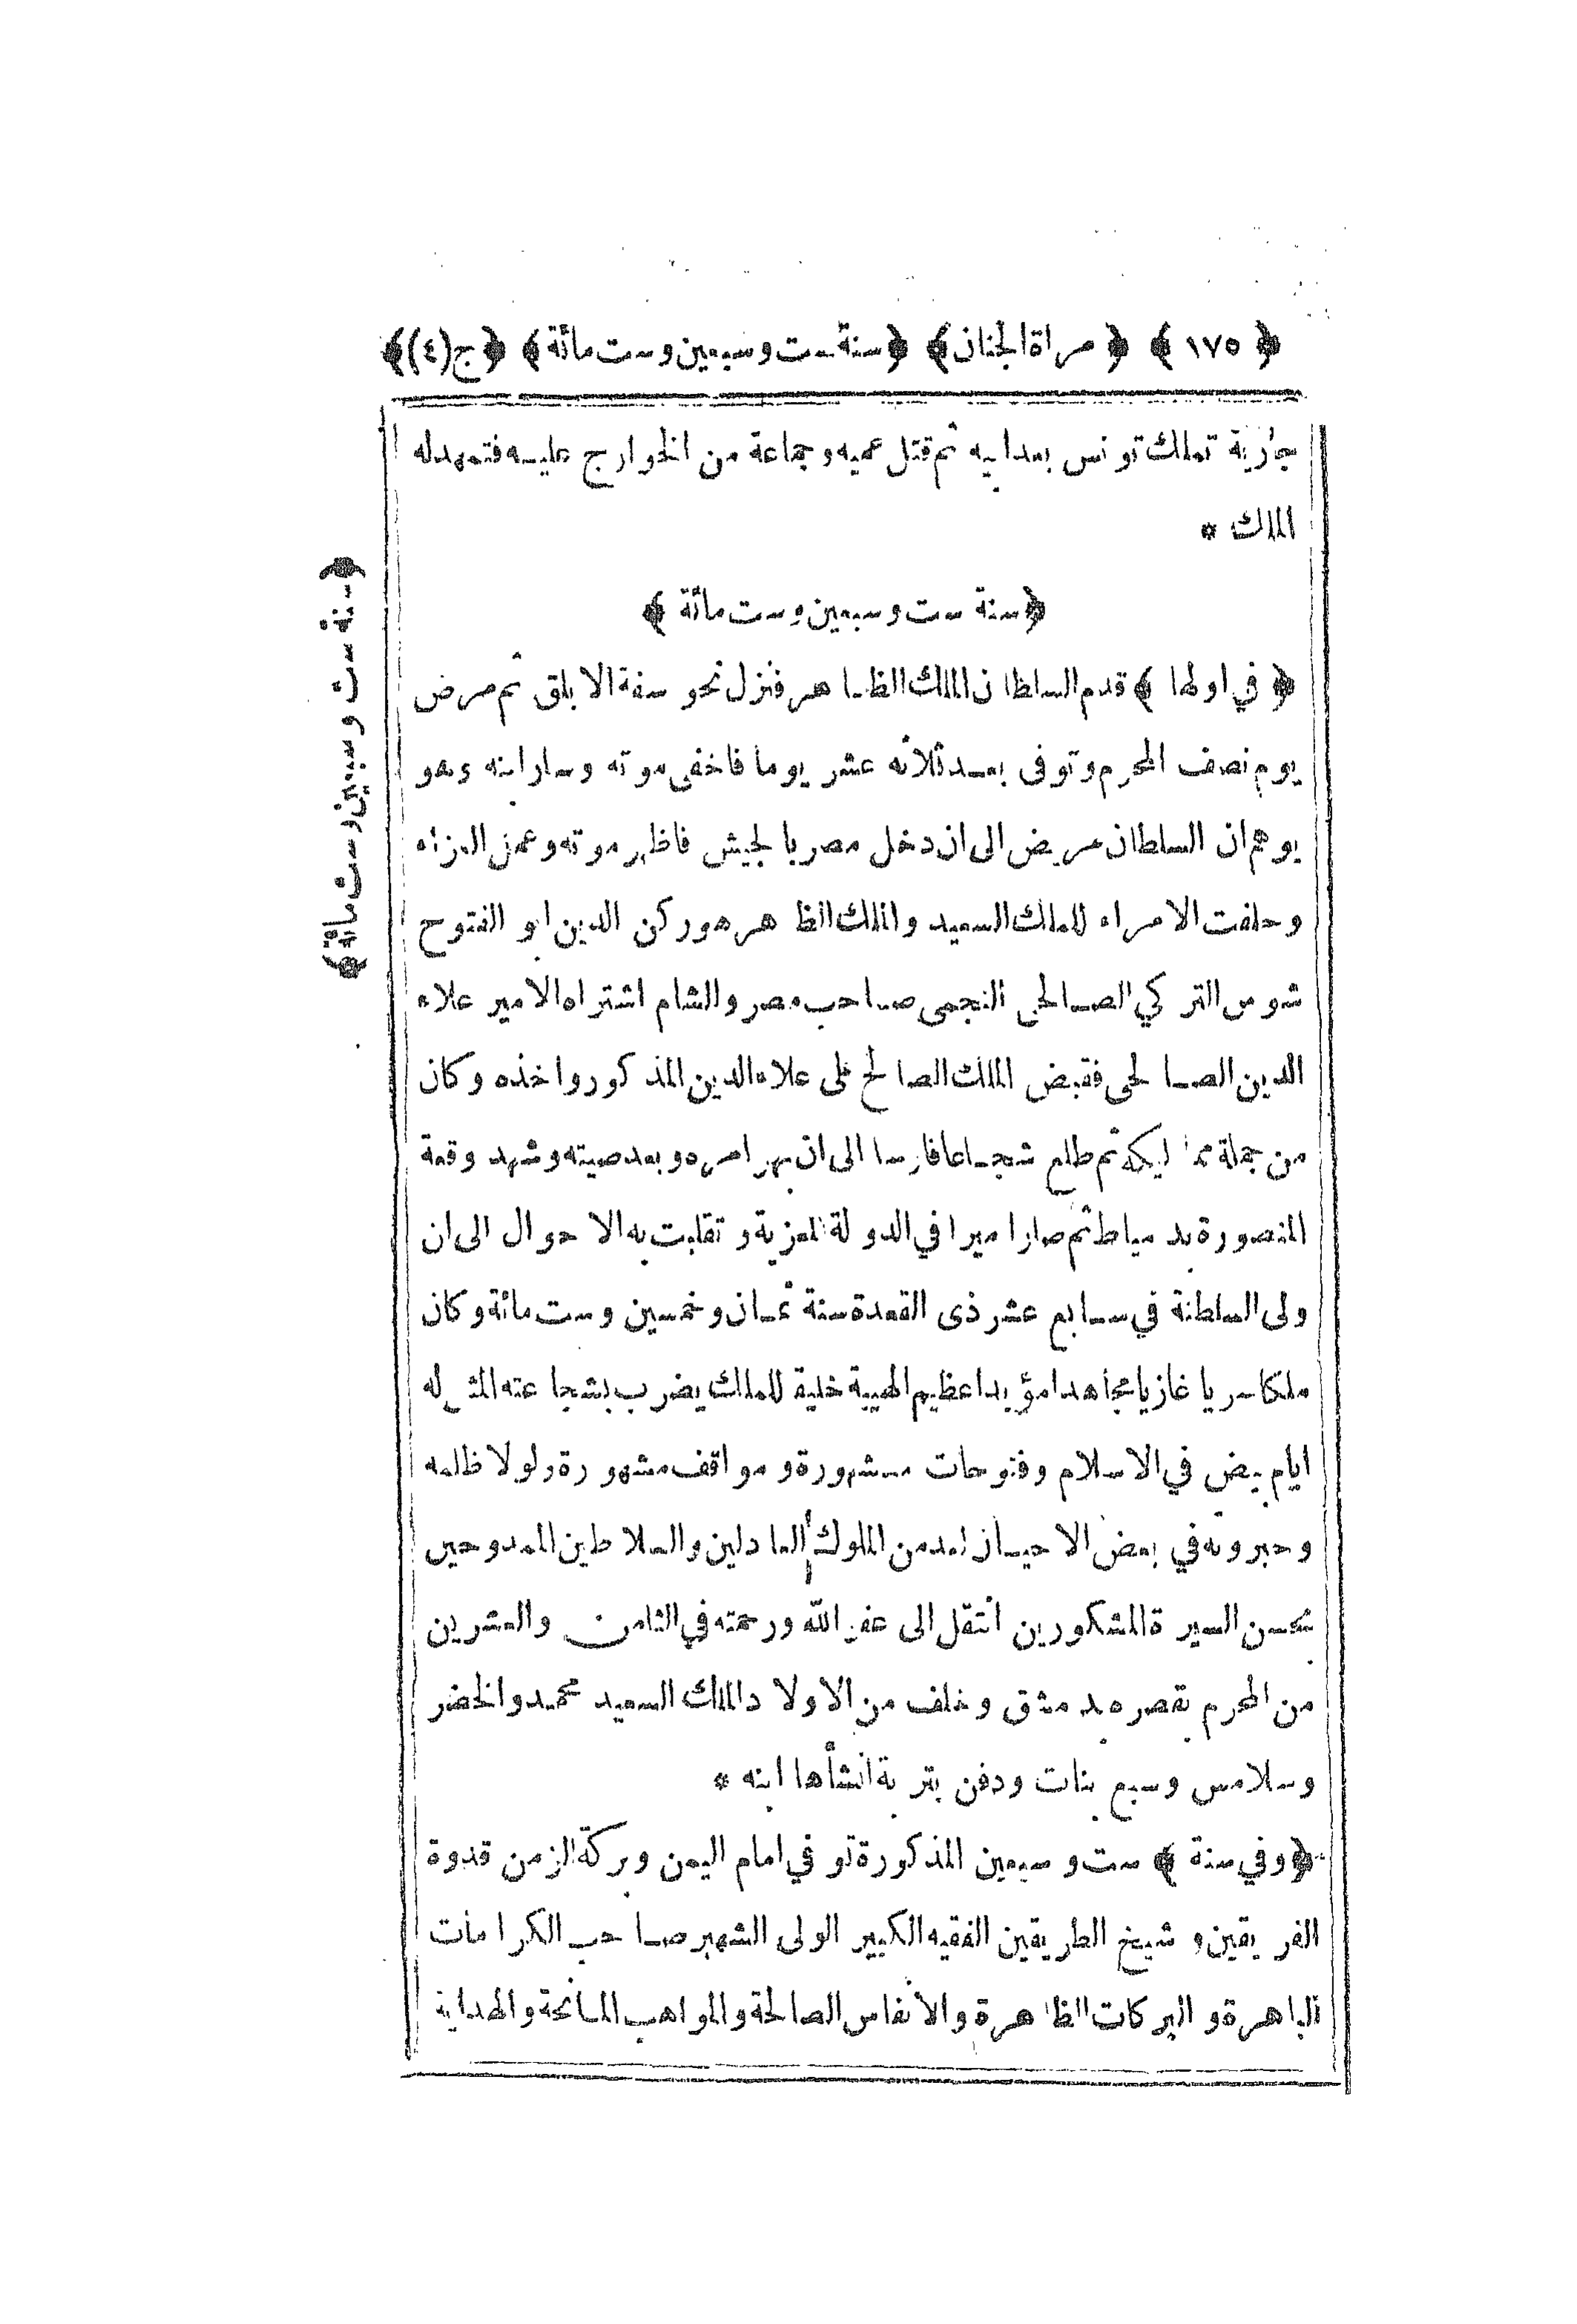 ﴿ ١٧٥ ﴾ ﴿ مراة الجنان ﴾ ﴿ سنة ست وسبعين وست مائة ﴾ ﴿ ج (٤) ﴾
تملك تونس بعد ابيه ثم قتل عميه وجماعة من الخوارج عليه فتمهد له
الملك *
﴿ سنة ست وسبعين وست مائة ﴾
﴿ في اولها ﴾ قدم السلطان الملك الظاهر فنزل نحو سفة الابلق ثم مرض
يوم نصف المحرم وتوفى بعد ثلاثه عشر يوما فاخفى موته وسار ابنه وهو
يوهم ان السلطان مريض الى ان دخل مصر بالجيش فاظهر موته وعمل العزاء
وحلفت الامراء للملك السعيد والملك الظاهر هو ركن الدين ابو الفتوح
التركي الصالحي النجمى صاحب مصر والشام اشتراه الامير علاء
الدين الصالحى فقبض الملك الصالح على علاء الدين المذكور واخذه وكان
من جملة مماليكه ثم طلع شجاعا فارسا الى ان بهر امره وبعد صيته وشهد وقعة
المنصورة بدمياط ثم صار اميرا في الدولة المعزية وتقلبت به الاحوال الى ان
ولى السلطنة في سابع عشر ذى القعدة سنة ثمان وخمسين وست مائة وكان
ملكا سريا غازيا مجاهدا مؤيدا عظيم الهيبة خليقا للملك يضرب بشجاعته المثل له
ايام بيض في الاسلام وفتوحات مشهورة ومواقف مشهورة ولولا ظلمه
وجبروته في بعض الاحيان لعد من الملوك العادلين والسلاطين الممدوحين
بحسن السيرة المشكورين انتقل الى عفو الله ورحمته في الثامن والعشرين
من المحرم بقصره بدمشق وخلف من الاولاد الملك السعيد محمد والخضر
وسلامس وسبع بنات ودفن بتربة انشأها ابنه *
﴿ وفي سنة ﴾ ست وسبعين المذكورة توفي امام اليمن وبركة الزمن قدوة
الفريقين وشيخ الطريقين الفقيه الكبير الولى الشهير صاحب الكرامات
الباهرة والبركات الظاهرة والانفاس الصالحة والمواهب المانحة والهداية
﴿ سنة ست وسبعين وست مائة ﴾